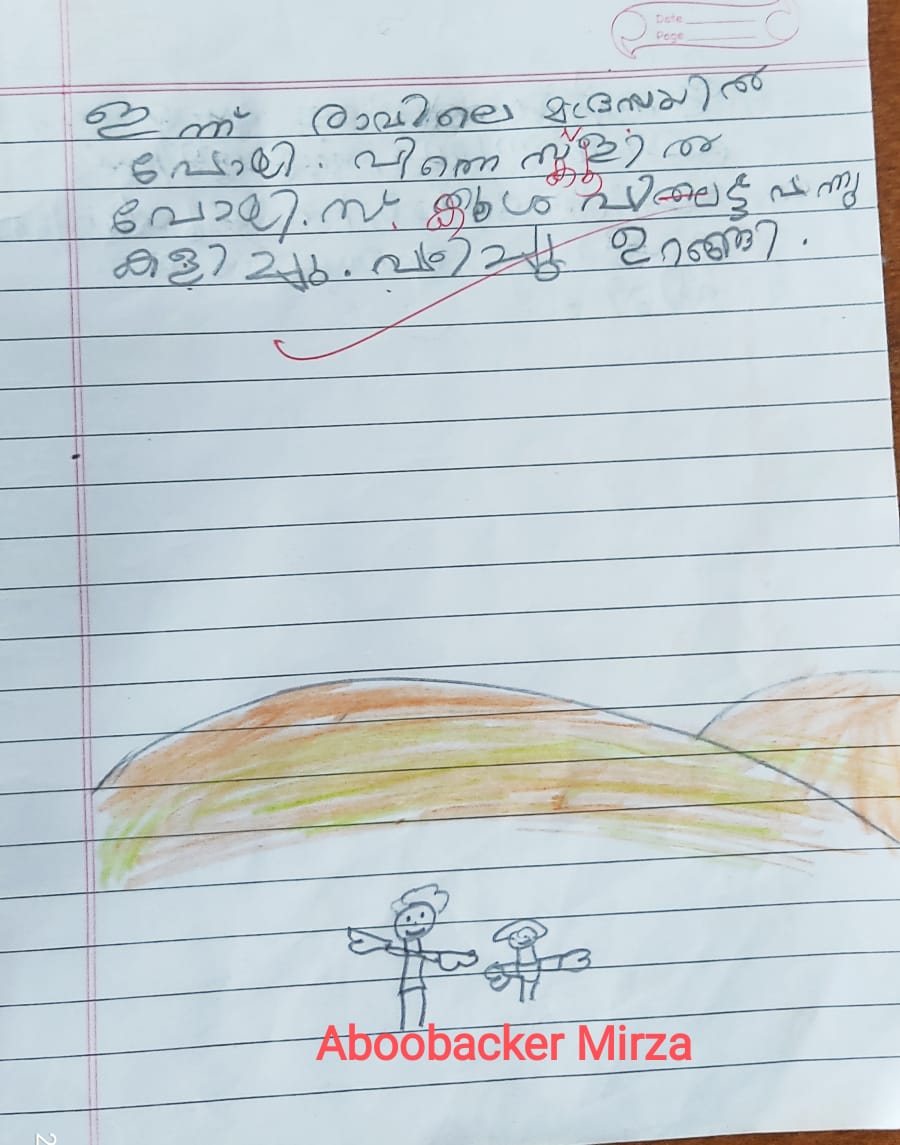 Date
Page
ഇന്ന് രാവിലെ മദ്രസയിൽ
പോയി. പിന്നെ സ്കൂളിൽ
പോയി. സ്കൂൾ വിട്ട് വന്നു
കളിച്ചു. പഠിച്ചു ഉറങ്ങി.
Aboobacker Mirza
2